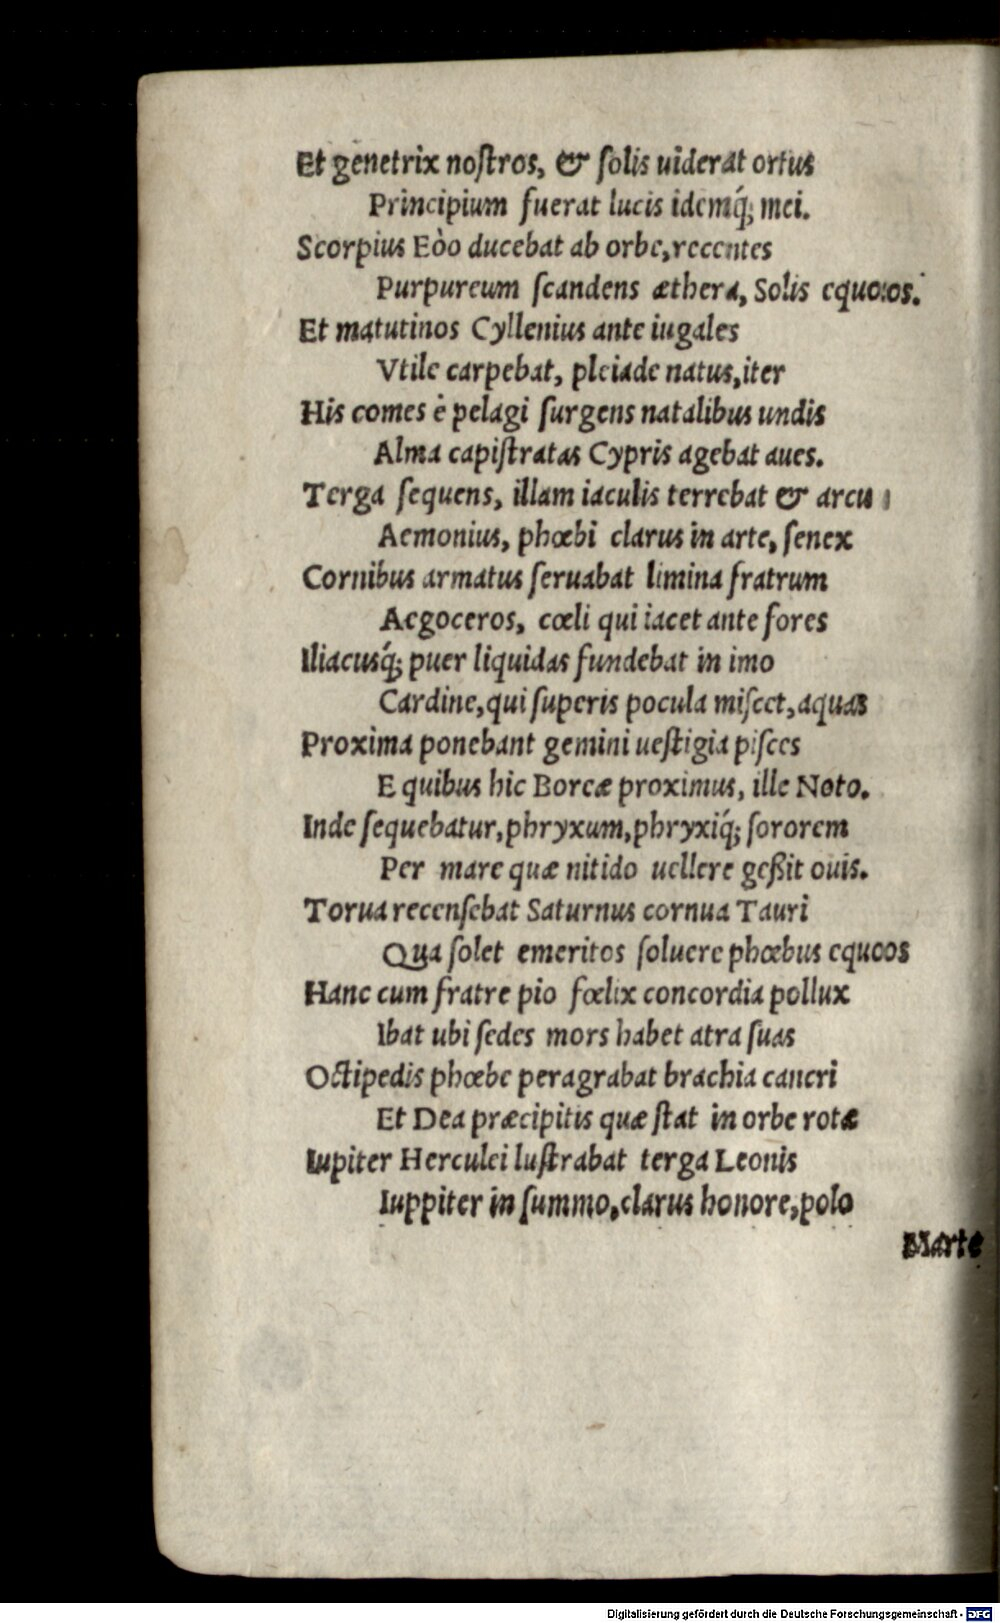 Et genetrix noſtros, & ſolis uiderat ortus
Principium fuerat lucis idemq́; mei.
Scorpius Eòo ducebat ab orbe, recentes
Purpureum ſcandens æthera, Solis equoos.
Et matutinos Cyllenius ante iugales
Vtile carpebat, pleiade natus, iter
His comes è pelagi ſurgens natalibus undis
Alma capiſtratas Cypris agebat aues.
Terga ſequens, illam iaculis terrebat & arcu
Aemonius, phœbi clarus in arte, ſenex
Cornibus armatus ſeruabat limina fratrum
Aegoceros, cœli qui iacet ante fores
Iliacusq́; puer liquidas fundebat in imo
Cardine, qui ſuperis pocula miſcet, aquas
Proxima ponebant gemini ueſtigia piſces
E quibus hic Boreæ proximus, ille Noto.
Inde ſequebatur, phryxum, phryxiq́; ſororem
Per mare quæ nitido uellere geßit ouis.
Torua recenſebat Saturnus cornua Tauri
Qua ſolet emeritos ſoluere phœbus equoos
Hanc cum fratre pio fœlix concordia pollux
Ibat ubi ſedes mors habet atra ſuas
Octipedis phœbe peragrabat brachia cancri
Et Dea præcipitis quæ ſtat in orbe rotæ
Iupiter Herculei luſtrabat terga Leonis
Iuppiter in ſummo, clarus honore, polo
Marte
Digitalisierung gefördert durch die Deutsche Forschungsgemeinschaft - DFG